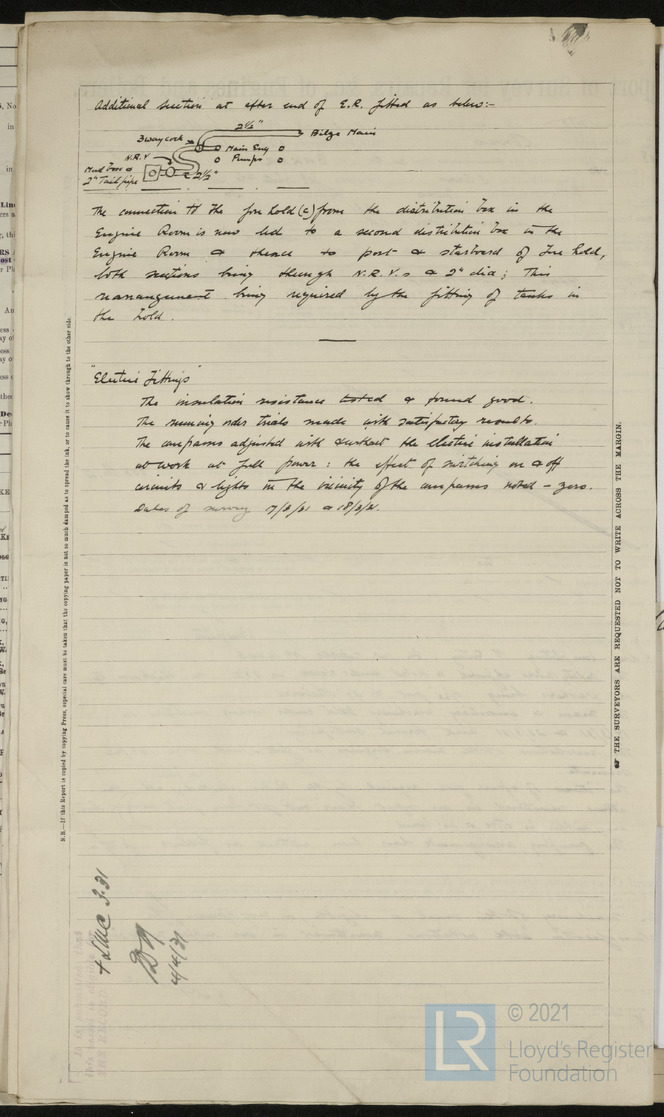 Additional suction at after end of E.R. fitted as below:-
2½"
3 way cock
Bilge Main
N.R.V
Main Eng
Pumps
Mud box &
2" Tail pipe
2½"
The connection to the fore hold (c) from the distribution box in the
Engine Room is now led to a second distribution box in the
Engine Room & thence to port & starboard of fore hold,
both suctions being through N.R.V.s & 2" dia; This
rearrangement being required by the fitting of tanks in
the hold.
"Electric Fittings"
The insulation resistance tested & found good.
The running order trials made with satisfactory results.
The compasses adjusted with & without the electric installation
at work at full power: the effect of switching on & off
circuits & lights in the vicinity of the compasses noted - zero.
Dates of survey
N.B.—If this Report is copied by copying Press, especial care must be taken that the copying paper is not so much damped as to spread the ink, or to cause it to show through to the other side.
THE SURVEYORS ARE REQUESTED NOT TO WRITE ACROSS THE MARGIN.
+ LMC 3.31
4/4/31
LR
© 2021
Lloyd's Register
Foundation